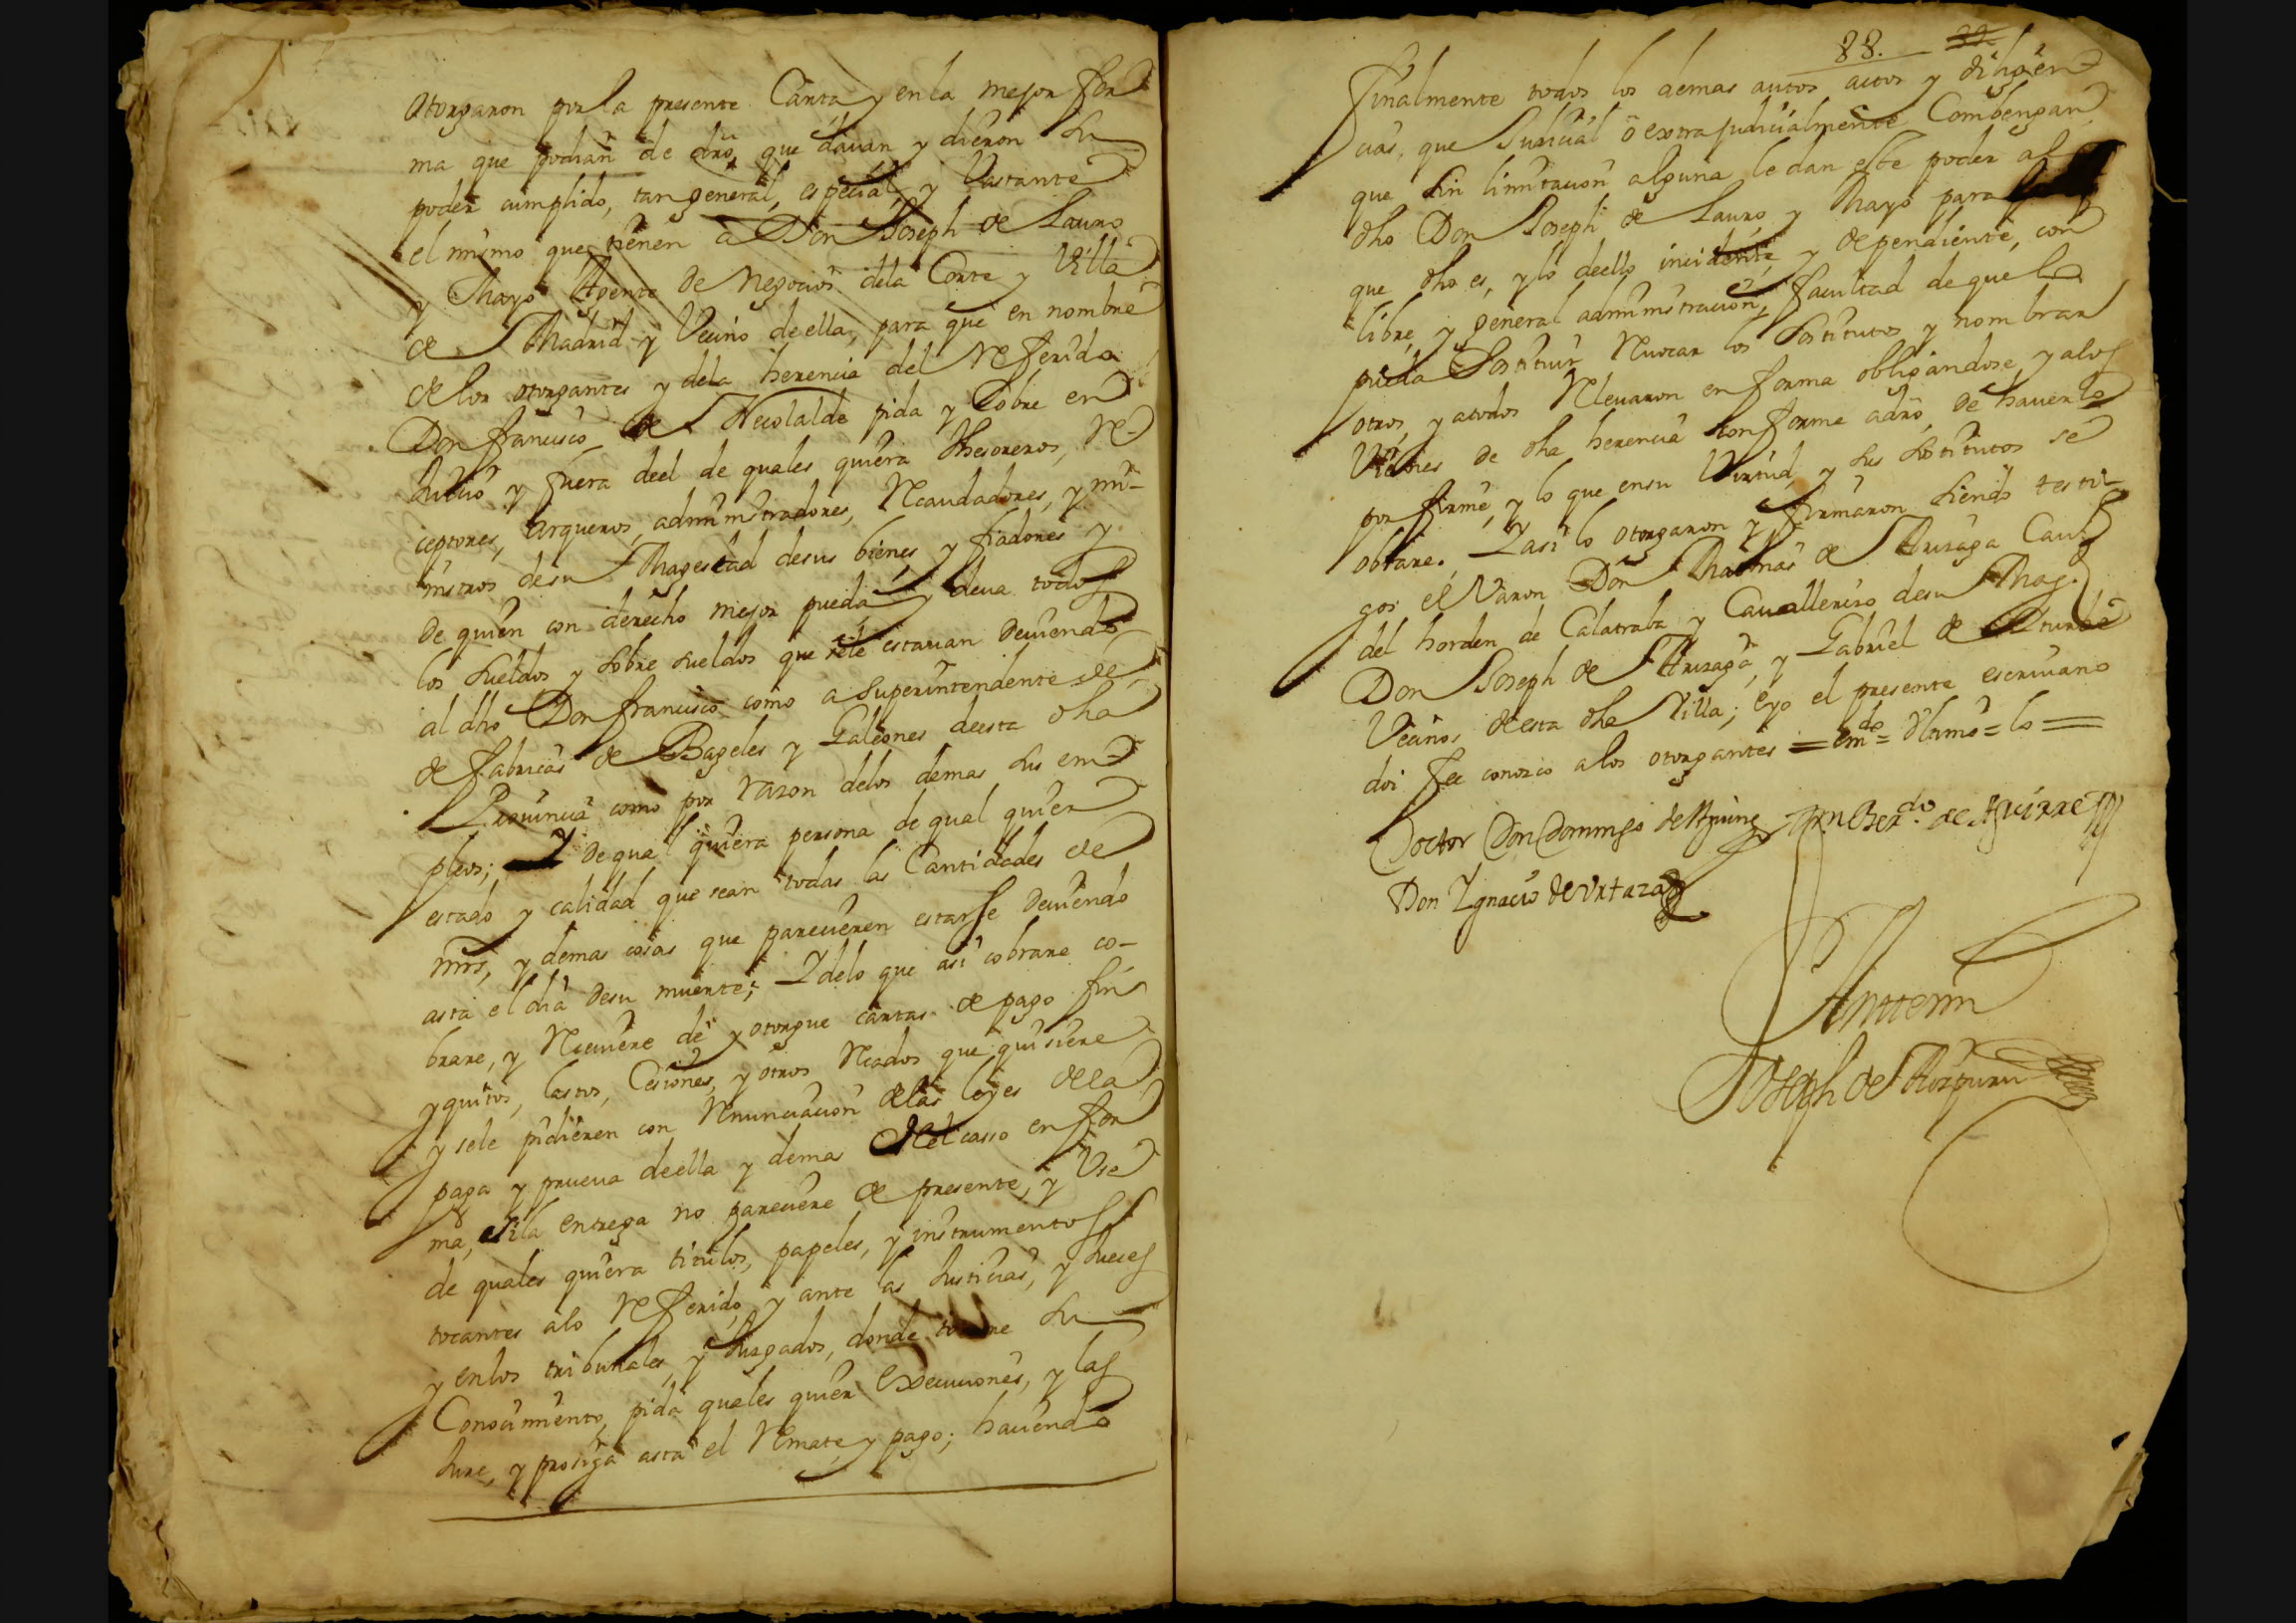 otorgaron por la presente Carta y en la mejor for
ma que podian de dro, que dauan y dieron su
poder cumplido, tan general, especial, y Vastante
el mismo que tienen a Don Joseph de Lauro
y Mayo Agente de negocios dela Corte y Villa
de Madrid y Vecino de ella, para que en nombre
de los otorgantes y dela herencia del referido
Don francisco de Necolalde pida y Cobre en
Juicio y fuera deel de quales quiera thesoreros, re
ceptores, arqueros, administradores, recaudadores, y mi-
nistros desu Magestad desus bienes y fiadores y
de quien con derecho mejor pueda y deua todos
los sueldos y sobre sueldos que sele estauan deuiendo
al dho Don francisco como a superintendente de
de fabricas de Bageles y Galeones deesta dha
Prouincia como por razon delos demas sus em
pleos; Y de qual quiera persona de qual quier
estado y calidad que sean todas las Cantidades de
mrs, y demas cosas que parecieren estarse deuiendo
asta el dia desu muerte; Y delo que asi cobrare co-
brare, y reciuiere dè y otorgue cartas de pago fini
y quitos, lastos, Cesiones, y otros recados que quisiere
y sele pidieren con renunciacion delas leyes dela
paga y prueua deella y demas del casso en for
ma, sila entrega no pareciere de presente, y Vse
de quales quiera titulos, papeles, y instrumentos
tocantes alo referido, y ante las Justicias, y Jueces
y enlos tribunales, y Juzgados, donde su
Conocimiento, pida quales quier execuciones, y las
Jure, y prosiga asta el remate y pago; haciendo
88.
finalmente todos los demas autos actos y diligen
cias, que Judicial ò extrajudicialmente Combengan
que sin limitacion alguna le dan este poder al
dho Don Joseph de Lauro, y Mayo para
que dho es, y lo deello incidente, y dependiente, con
libre, y general administracion, facultad de que lo
pueda sostituir reuocar los sostitutos y nombrar
otros, y atodos releuaron en forma obligandose, y alos
Vienes de dha herencia conforme adro, de hauerlo
por firme, y lo que ensu Virtud, y sus sostitutos se
obrare. Y asi lo otorgaron y firmaron siendo testi-
gos el Varon Don Mathias de Arizaga Cau.º
del horden de Calatraba y Cauallerizo desu Mag.d
Don Joseph de Arizaga, y Gabriel de Iturbe
Vecinos de esta dha Villa; e yo el presente escriuano
doi fee conozco a los otorgantes = em.do = Vltimo = lo =
Doctor Don Domingo de Aguirre Dn Ber.do de Aguirre
Don Ygnacio de Vrtaza
Antemi
Joseph de Aizpuru